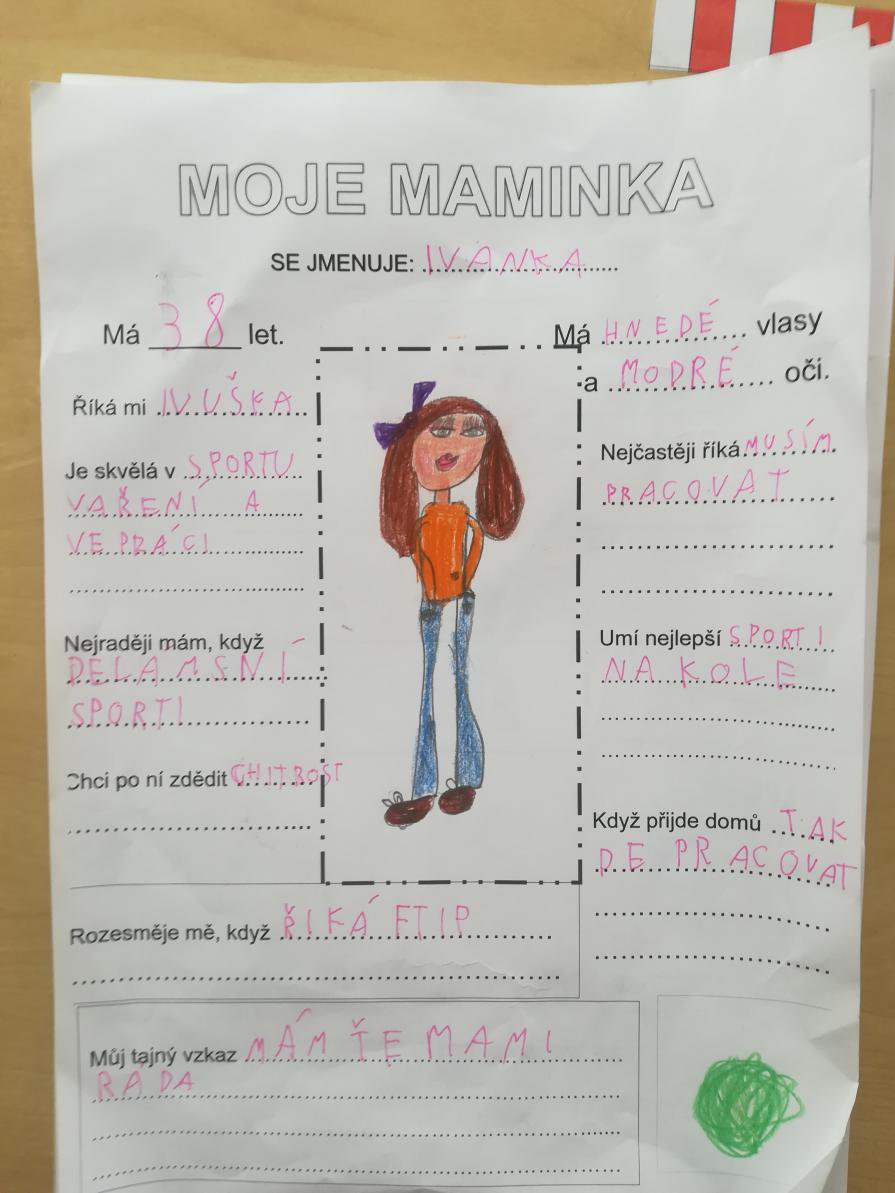 MOJE MAMINKA
SE JMENUJE: IVANKA
Má 38 let.
Má HNEDÉ vlasy
a MODRÉ oči.
Říká mi IVUŠKA
Je skvělá v SPORTU
VAŘENÍ A
VE PRÁCI
Nejraději mám, když
DELAM SNÍ
SPORTI
Chci po ní zdědit CHITROST
Nejčastěji říká MUSÍM
PRACOVAT
Umí nejlepší SPORTI
NA KOLE
Když přijde domů TAK
DE PRACOVAT
Rozesměje mě, když ŘIKÁ FTIP
Můj tajný vzkaz MÁM ŤE MAMI
RÁDA